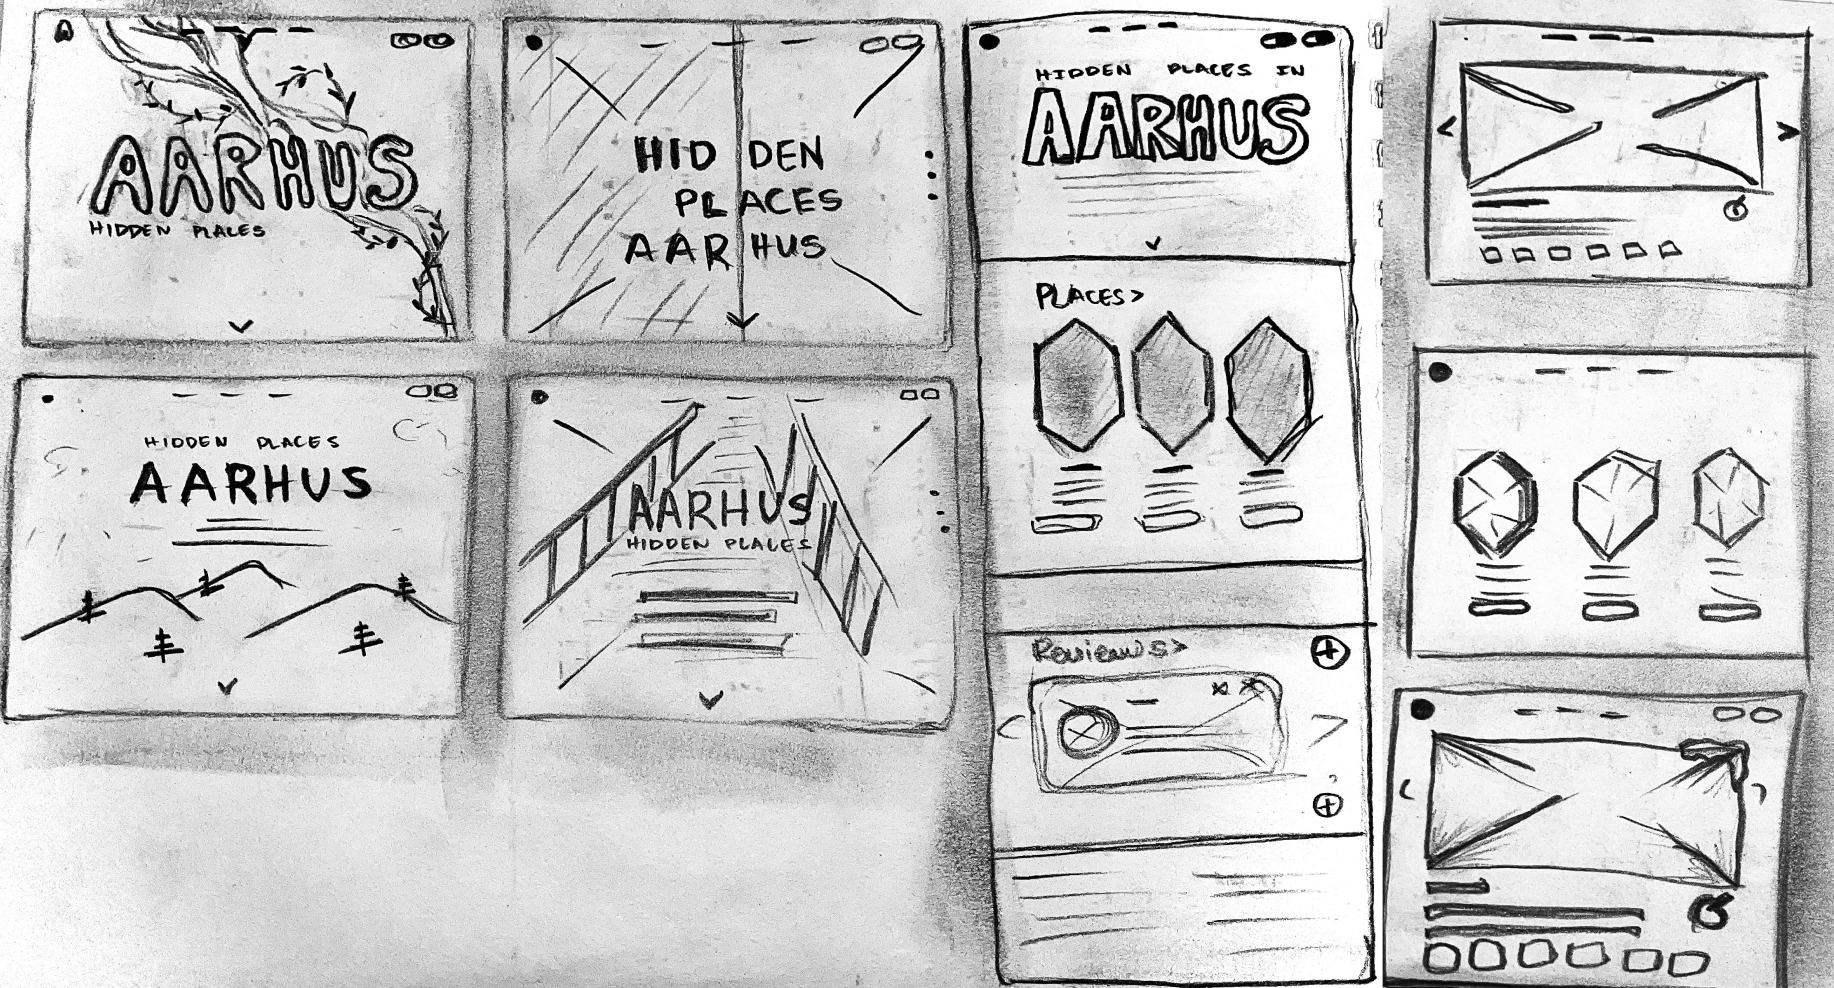 AARHUS
HIDDEN PLACES
HIDDEN
PLACES
AARHUS
HIDDEN PLACES
AARHUS
AARHUS
HIDDEN PLACES
HIDDEN PLACES IN
AARHUS
PLACES>
Reviews>